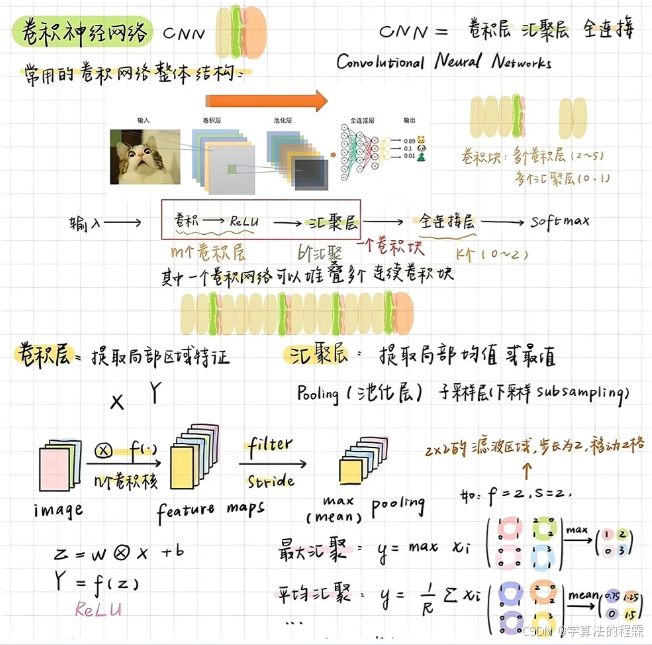 卷积神经网络 CNN
CNN = 卷积层 汇聚层 全连接
Convolutional Neural Networks
常用的卷积网络整体结构:
输入 卷积层 池化层 全连接层 输出
0.89
0.1
0.01
卷积块: 多个卷积层(2~5)
多个汇聚层(0、1)
输入 → 卷积 → ReLU → 汇聚层 → 全连接层 → softmax
m个卷积层 b个汇聚 一个卷积块 K个(0~2)
其中一个卷积网络可以堆叠多个连续卷积块
卷积层= 提取局部区域特征
汇聚层: 提取局部均值或最值
Pooling(池化层) 子采样层(下采样 subsampling)
X Y
2x2的滤波区域,步长为2,移动2格
如: f=2,s=2.
image
⊗ f(·)
n个卷积核
feature maps
filter
stride
max
(mean) pooling
Z = W ⊗ X + b
Y = f(z)
ReLU
最大汇聚: y = max xi
max
1 2
0 3
平均汇聚: y = 1/R Σ xi
mean
0.75 1.25
0 1.5
...
CSDN @学算法的程霖